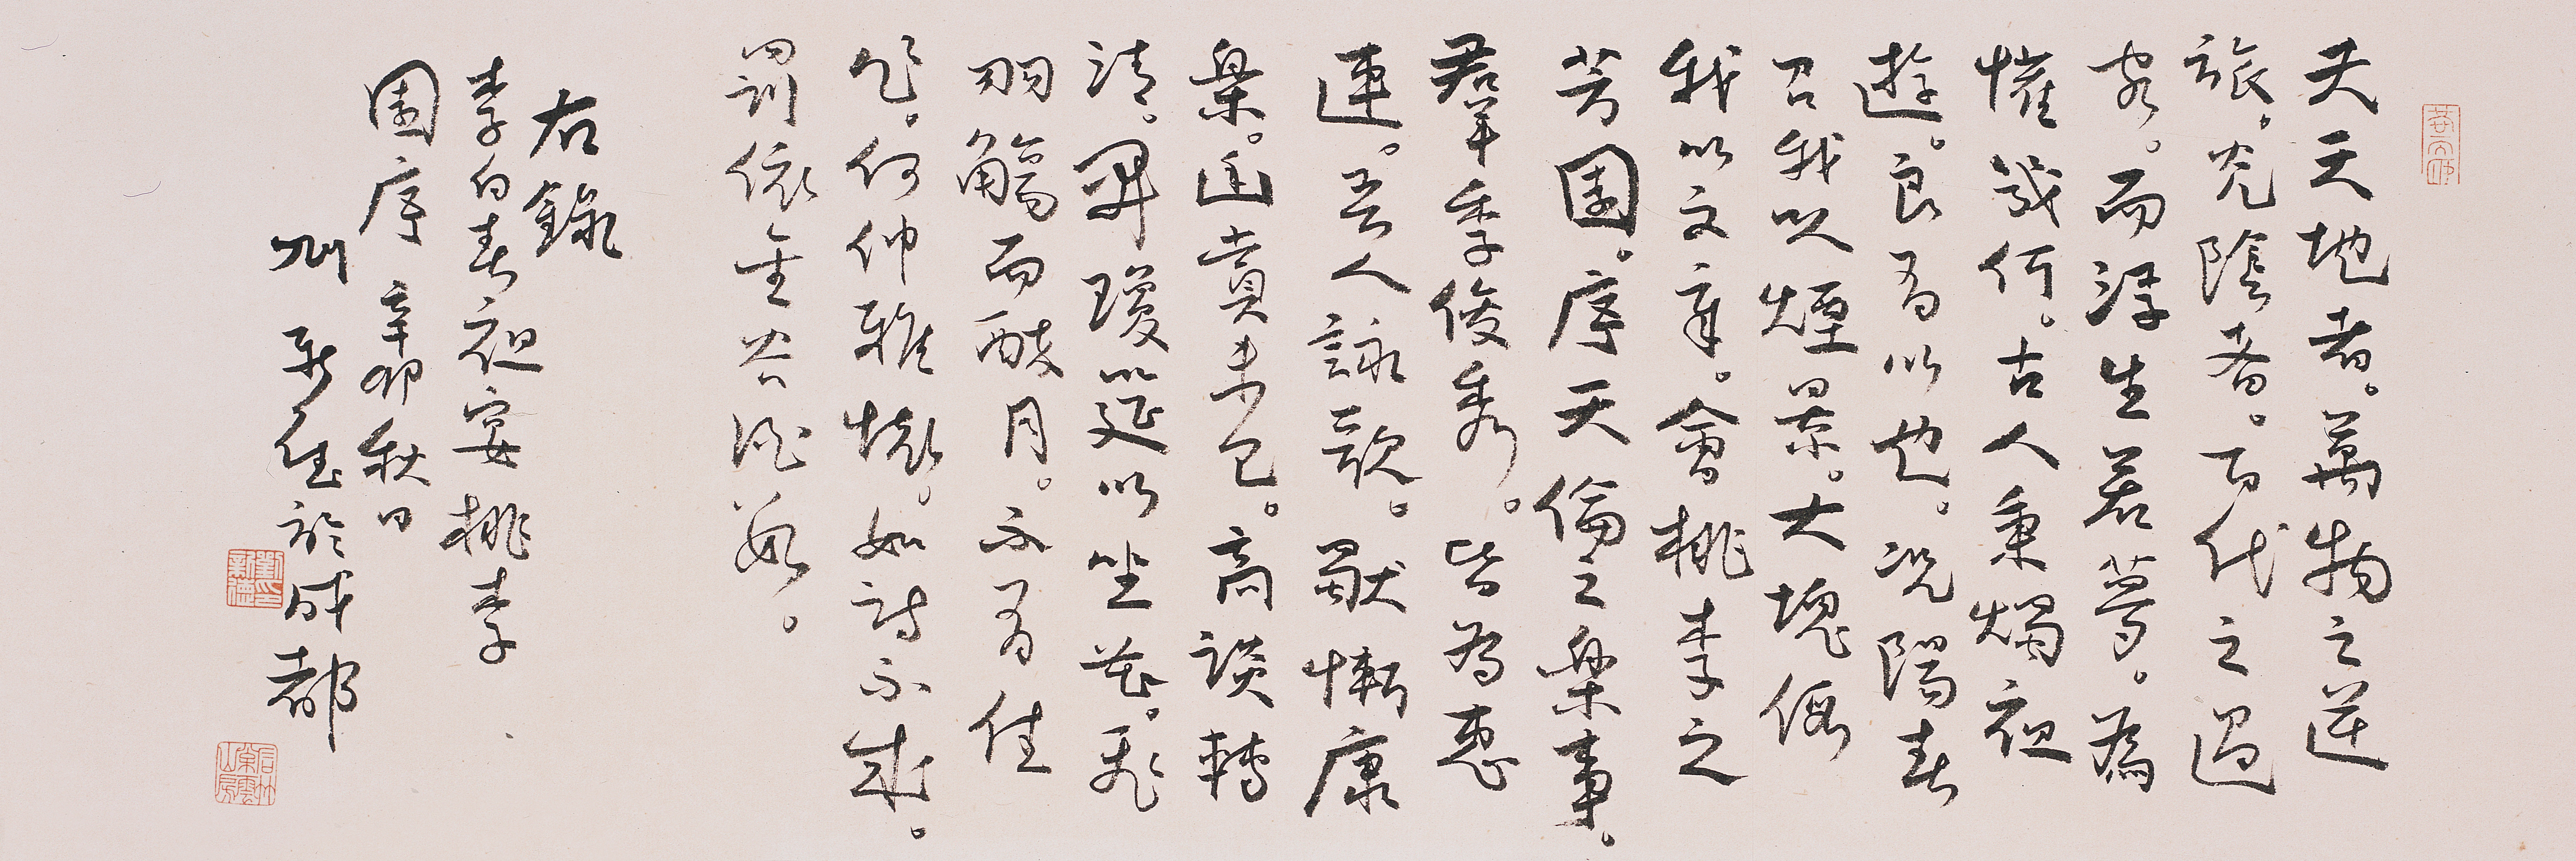 夫天地者。萬物之逆
旅。光陰者。百代之過
客。而浮生若夢。為
懽幾何。古人秉燭夜
遊。良有以也。況陽春
召我以煙景。大塊假
我以文章。會桃李之
芳園。序天倫之樂事。
羣季俊秀。皆為惠
連。吾人詠歌。獨慚康
樂。幽賞未已。高談轉
清。開瓊筵以坐花。飛
羽觴而醉月。不有佳
作。何伸雅懷。如詩不成。
罰依金谷酒數。
右錄
李白春夜宴桃李
園序 辛卯秋日
刘新德於成都
劉印新德